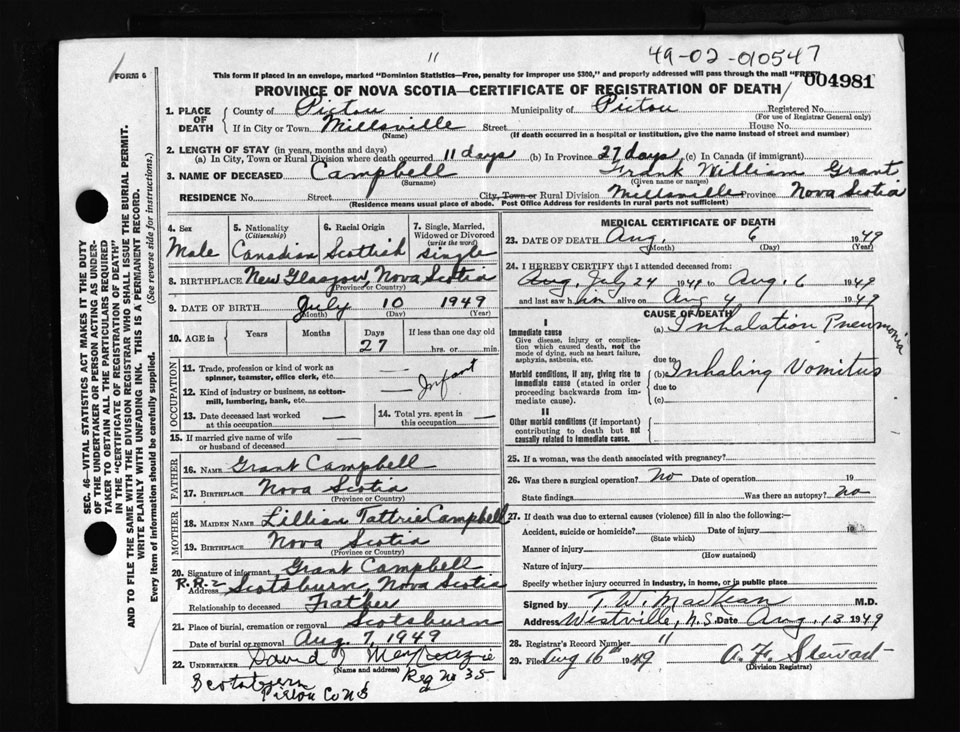 49-02-010547
11
FORM 6
This form if placed in an envelope, marked "Dominion Statistics—Free, penalty for improper use $300," and properly addressed will pass through the mail "FREE"
004981
PROVINCE OF NOVA SCOTIA—CERTIFICATE OF REGISTRATION OF DEATH
1. PLACE OF DEATH
County of Pictou Municipality of Pictou Registered No.
(For use of Registrar General only)
If in City or Town Millsville Street House No.
(Name) (If death occurred in a hospital or institution, give the name instead of street and number)
2. LENGTH OF STAY (in years, months and days)
(a) In City, Town or Rural Division where death occurred 11 days (b) In Province 27 days (c) In Canada (if immigrant)
3. NAME OF DECEASED Campbell Frank William Grant
(Surname) (Given name or names)
RESIDENCE No. Street City, Town or Rural Division Millsville Province Nova Scotia
(Residence means usual place of abode. Post Office Address for residents in rural parts not sufficient)
4. Sex 5. Nationality (Citizenship) 6. Racial Origin 7. Single, Married, Widowed or Divorced (write the word)
Male Canadian Scottish Single
8. BIRTHPLACE New Glasgow, Nova Scotia
(Province or Country)
9. DATE OF BIRTH July 10 1949
(Month) (Day) (Year)
10. AGE in Years Months Days If less than one day old
27 hrs. or min.
OCCUPATION
11. Trade, profession or kind of work as spinner, teamster, office clerk, etc. —
12. Kind of industry or business, as cotton-mill, lumbering, bank, etc. — Infant
13. Date deceased last worked at this occupation — 14. Total yrs. spent in this occupation —
15. If married give name of wife or husband of deceased —
FATHER
16. NAME Grant Campbell
17. BIRTHPLACE Nova Scotia
(Province or Country)
MOTHER
18. MAIDEN NAME Lillian Tattrie Campbell
19. BIRTHPLACE Nova Scotia
(Province or Country)
20. Signature of informant Grant Campbell
R.R. 2
Address Scotsburn, Nova Scotia
Relationship to deceased Father
21. Place of burial, cremation or removal Scotsburn
Date of burial or removal Aug. 7, 1949
22. UNDERTAKER David J MacKenzie
(Name and address) Reg No 35
Scotsburn
Pictou Co NS
MEDICAL CERTIFICATE OF DEATH
23. DATE OF DEATH Aug. 6 1949
(Month) (Day) (Year)
24. I HEREBY CERTIFY that I attended deceased from:
Aug, July 24 1949 to Aug. 6 1949
and last saw him alive on Aug 4 1949
CAUSE OF DEATH
I
Immediate cause
Give disease, injury or complication which caused death, not the mode of dying, such as heart failure, asphyxia, asthenia, etc.
(a) Inhalation Pneumonia
due to
Morbid conditions, if any, giving rise to immediate cause (stated in order proceeding backwards from immediate cause).
(b) Inhaling Vomitus
due to
(c)
II
Other morbid conditions (if important) contributing to death but not causally related to immediate cause.
25. If a woman, was the death associated with pregnancy?
26. Was there a surgical operation? No Date of operation 19
State findings Was there an autopsy? no
27. If death was due to external causes (violence) fill in also the following:—
Accident, suicide or homicide? Date of injury 19
(State which)
Manner of injury
(How sustained)
Nature of injury
Specify whether injury occurred in industry, in home, or in public place
Signed by T. W. MacLean M.D.
Address Westville, N.S. Date Aug. 13 1949
28. Registrar's Record Number 11
29. Filed Aug 16th 1949 A. F. Stewart
(Division Registrar)
SEC. 46—VITAL STATISTICS ACT MAKES IT THE DUTY OF THE UNDERTAKER OR PERSON ACTING AS UNDERTAKER TO OBTAIN ALL THE PARTICULARS REQUIRED IN THE "CERTIFICATE OF REGISTRATION OF DEATH" AND TO FILE THE SAME WITH THE DIVISION REGISTRAR WHO SHALL ISSUE THE BURIAL PERMIT.
WRITE PLAINLY WITH UNFADING INK. THIS IS A PERMANENT RECORD.
Every item of information should be carefully supplied. (See reverse side for instructions.)